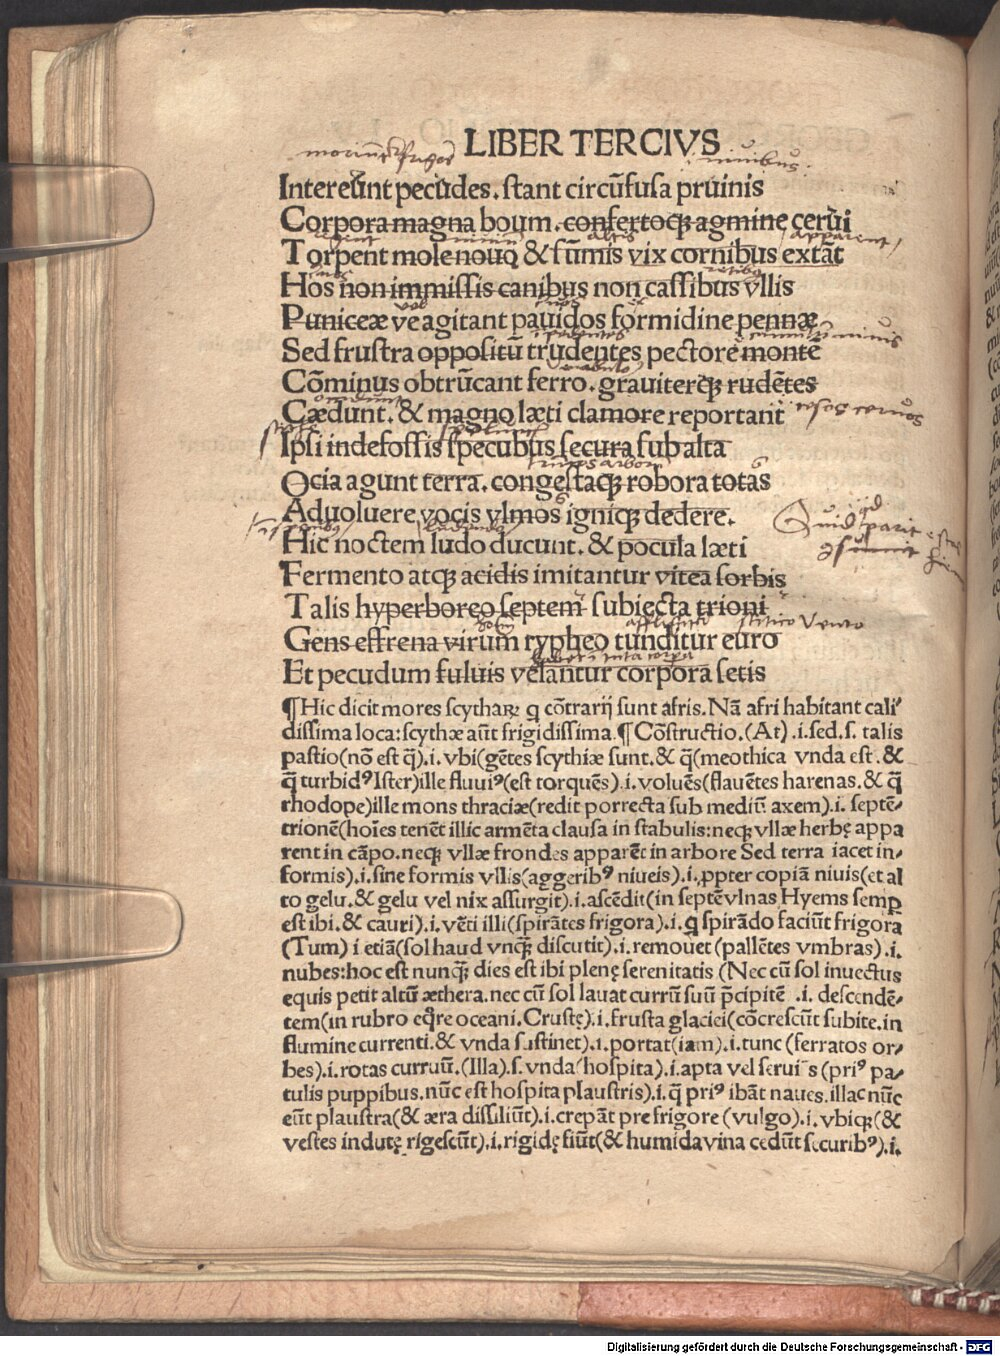 LIBER TERCIVS
niuibus.
Intereũnt pecudes. stant circũfusa pruinis
Corpora magna boum. confertoq; agmine cerũi
apparent
Torpent mole nouo & sũmis vix cornibus extãt
Hos non immissis canibus non cassibus vllis
Puniceæ ve agitant pauidos formidine pennæ
Sed frustra oppositũ trudentes pectore montẽ
Cõminus obtrũcant ferro. grauiterq; rudẽtes
Cædunt. & magno læti clamore reportant
Ipsi in defossis specubus secura sub alta
Ocia agunt terra. congestaq; robora totas
Aduoluere vocis vlmos igniq; dedere.
Hic noctem ludo ducunt. & pocula læti
Fermento atq; acidis imitantur vitea sorbis
Talis hyperboreo septem subiecta trioni
vento
Gens effrena virum rypheo tunditur euro
Et pecudum fuluis velantur corpora setis
¶ Hic dicit mores scythaꝝ q cõtrarij sunt afris. Nã afri habitant cali
dissima loca: scythæ aũt frigidissima. ¶ Cõstructio. (At) .i. sed. s. talis
pastio (nõ est q̃) .i. vbi (gẽtes scythiæ sunt. & q̃ (meothica vnda est. &
q̃ turbidꝰ Ister) ille fluuiꝰ (est torquẽs) .i. voluẽs (flauẽtes harenas. & q̃
rhodope) ille mons thraciæ (redit porrecta sub mediũ axem) .i. septẽ-
trionẽ (hoĩes tenẽt illic armẽta clausa in stabulis: neq; vllæ herbę appa
rent in cãpo. neq; vllæ frondes apparẽt in arbore Sed terra iacet in-
formis) .i. sine formis vllis (aggeribꝰ niueis) .i. ꝓpter copiã niuis (et al
to gelu. & gelu vel nix assurgit) .i. ascẽdit (in septẽ vlnas Hyems semꝑ
est ibi. & cauri) .i. vẽti illi (spirãtes frigora) .i. q spirãdo faciũt frigora
(Tum) i etiã (sol haud vnq̃; discutit) .i. remouet (pallẽtes vmbras) .i.
nubes: hoc est nunq̃; dies est ibi plenę serenitatis (Nec cũ sol inuectus
equis petit altũ æthera. nec cũ sol lauat currũ suũ p̃cipitẽ .i. descendẽ-
tem (in rubro eq̃re oceani. Crustę) .i. frusta glaciei (cõcrescũt subite. in
flumine currenti. & vnda sustinet) .i. portat (iam) .i. tunc (ferratos or-
bes) .i. rotas curruũ. (Illa) .s. vnda (hospita) .i. apta vel seruiẽs (priꝰ pa-
tulis puppibus. nũc est hospita plaustris) .i. q̃ priꝰ ibãt naues. illac nũc
eũt plaustra (& æra dissiliũt) .i. crepãt pre frigore (vulgo) .i. vbiq; (&
vestes indutę rigescũt) .i. rigidę fiũt (& humida vina cedũt securibꝰ) .i.
Digitalisierung gefördert durch die Deutsche Forschungsgemeinschaft - DFG